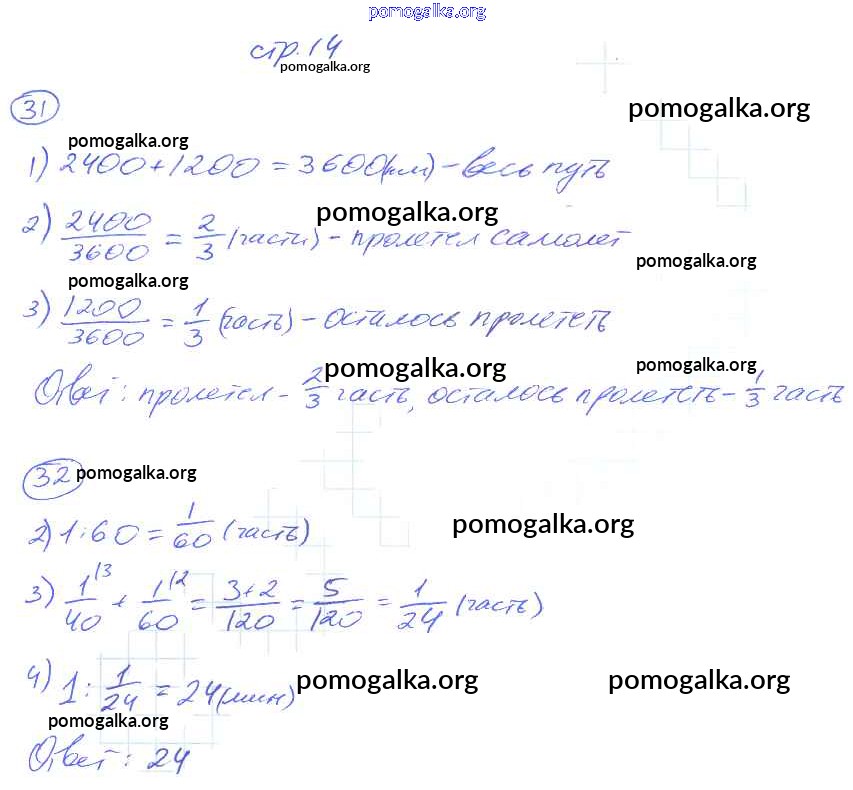 pomogalka.org
стр. 14
pomogalka.org
31
pomogalka.org
pomogalka.org
1) 2400+1200 = 3600(км) - весь путь
pomogalka.org
2) 2400/3600 = 2/3 (части) - пролетел самолет
pomogalka.org
pomogalka.org
3) 1200/3600 = 1/3 (часть) - осталось пролететь
pomogalka.org
pomogalka.org
Ответ: пролетел - 2/3 часть, осталось пролететь - 1/3 часть
32 pomogalka.org
2) 1:60 = 1/60 (часть)
pomogalka.org
3) 1/40 \3 + 1/60 \2 = 3+2/120 = 5/120 = 1/24 (часть)
4) 1 : 1/24 = 24 (мин)
pomogalka.org
pomogalka.org
pomogalka.org
Ответ: 24